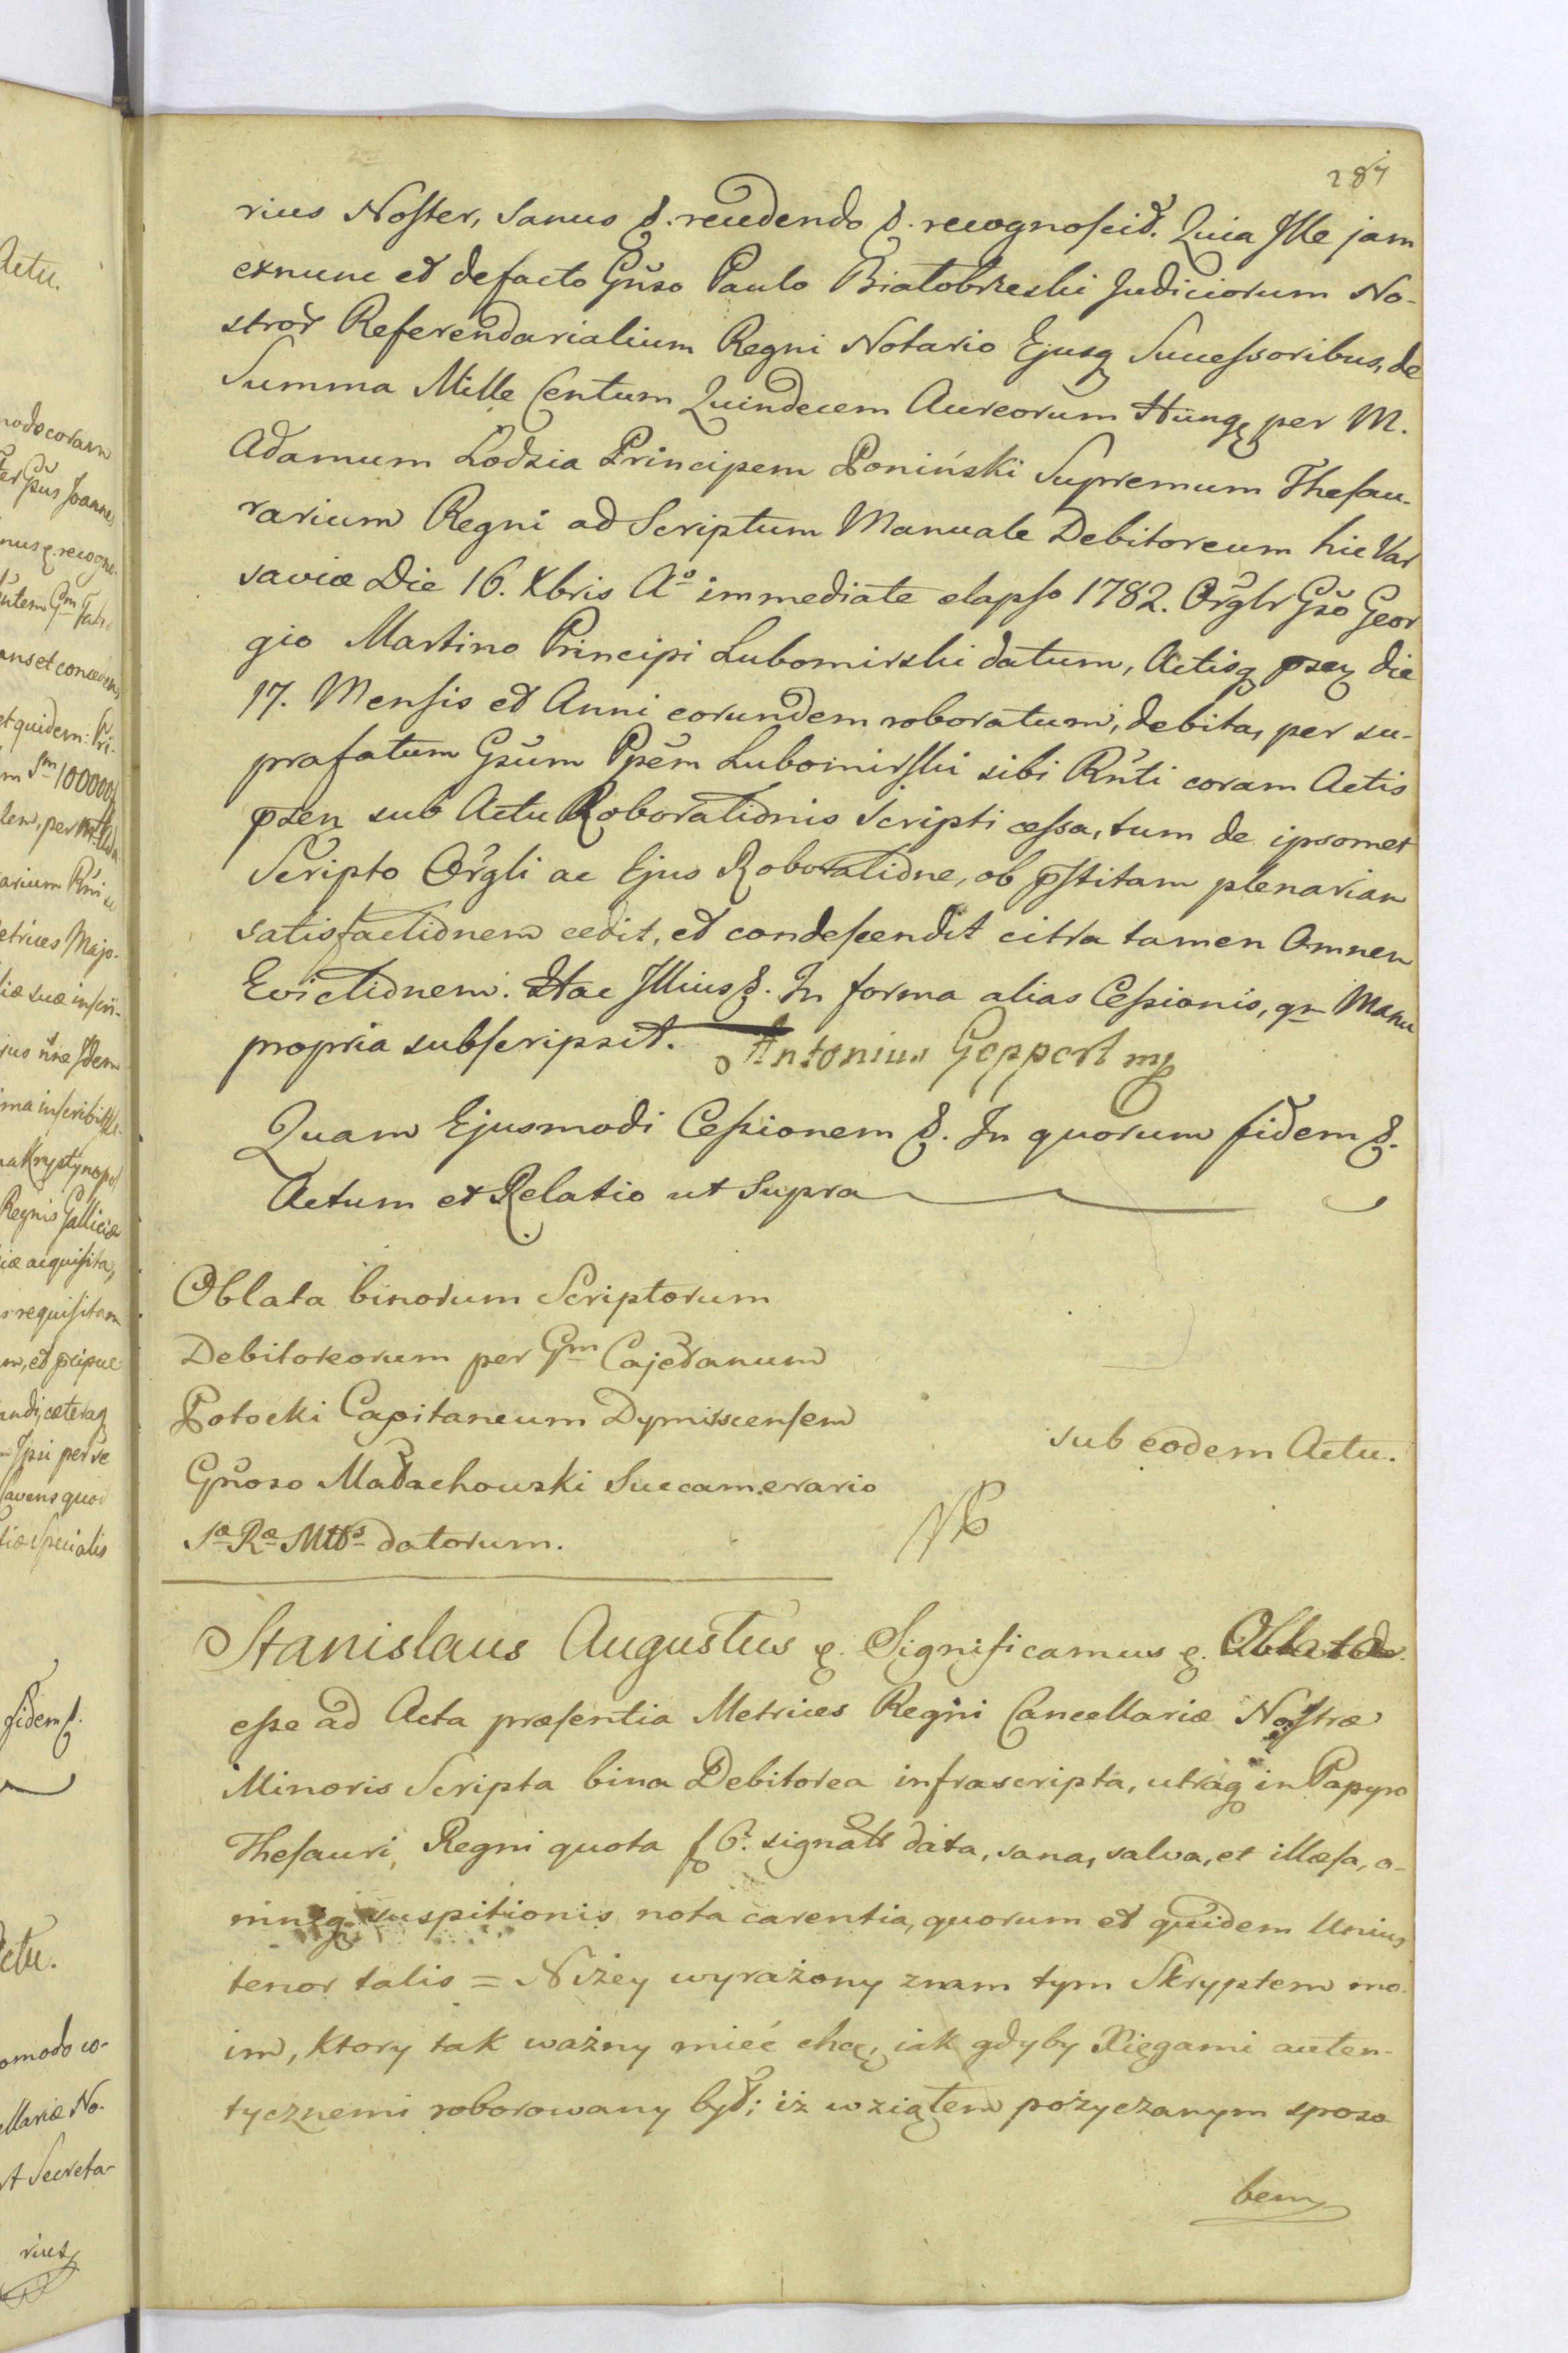 287
rius Noster, Sanus &. recedendo &. recognoscit. Quia Ille jam
exnunc et defacto Gnso Paulo Białobrzeski Judiciorum No-
stror Referendarialium Regni Notario Ejusq Successoribus, de
Summa Mille Centum Quindecem Aureorum Hung per M.
Adamum Łodzia Principem Poniński Supremum Thesau-
rarium Regni ad Scriptum Manuale Debitoreum hic Var
saviæ Die 16. Xbris Aº immediate elapso 1782. Orglr Gso Geor
gio Martino Principi Lubomirski datum, Actisq psen die
17. Mensis et Anni eorundem roboratum, debita, per su-
prafatum Gsum Ppem Lubomirski sibi Rnti coram Actis
psen sub Actu Roborationis Scripti cessa, tum de ipsomet
Scripto Orgli ac Ejus Roboratione, ob pstitam plenariam
satisfactionem cedit, et condescendit citra tamen Omnem
Evictionem. Hac Illius &. In forma alias Cessionis, qm Manu
propria subscripsit. Antonius Geppert mp
Quam Ejusmodi Cessionem &. In quorum fidem &.
Actum et Relatio ut Supra
Oblata binorum Scriptorum
Debitoreorum per Gm Cajetanum
Potocki Capitaneum Dymirscensem
Gnoso Małachowski Succamerario
Sæ Ræ Mttis datorum.
sub eodem Actu.
Stanislaus Augustus &. Significamus &. Oblata
esse ad Acta præsentia Metrices Regni Cancellariæ Nostræ
Minoris Scripta bina Debitorea infrascripta, utraq in Papyro
Thesauri Regni quota f 6. signata data, sana, salva, et illæsa, o-
mniq suspitionis nota carentia, quorum et quidem Unius
tenor talis = Niżey wyrażony znam tym Skryptem mo-
im, ktory tak ważny mieć chcę, iak gdyby Xięgami auten-
tycznemi roborowany był; iż wziąłem pożyczanym sposo
bem